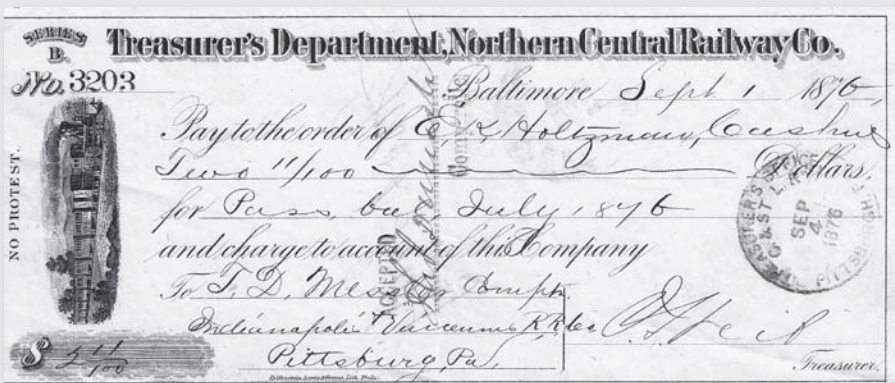 SERIES
B.
Treasurer's Department, Northern Central Railway Co.
No. 3203
Baltimore Sept 1 1876,
Pay to the order of E. K. Holtzman, Cashier
Two 11/100 Dollars,
for Pass bal, July 1876
and charge to account of this Company
To F. D. Messler Compt.
Indianapolis & Vincennes R.R. Co
Pittsburg, Pa,
$ 2 11/100
Treasurer.
NO PROTEST.
ACCEPTED
TREASURER'S OFFICE
C & ST. L. R
SEP
4
1876
PITTSBURGH